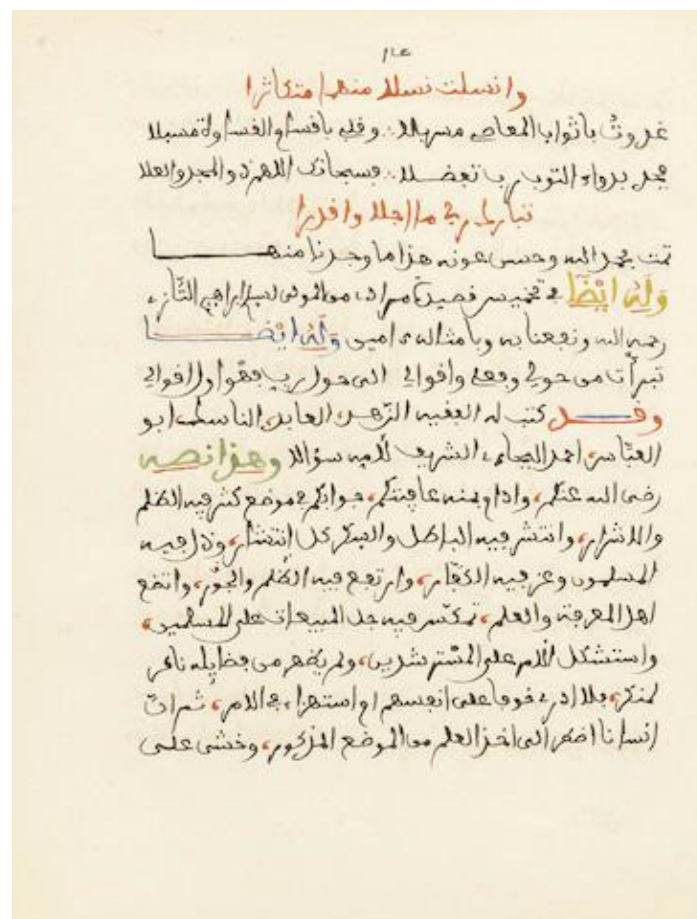 وانسلت نسلا منهما متكاثرا
غدوت باثواب المعاصي مسربلا ∴ وقلبي بأقسام القساوة مسبلا
فجد برداء التوب رب تفضلا ∴ فسبحانك اللهم ذو المجد والعلا
تباركت ربي ما اجلا واقدرا
تمت بحمد الله وحسن عونه هذا ما وجدنا منها
وله ايضا في تخميس قصيدة مرادي من المولى لسيدي ابراهيم التازي
رحمه الله ونفعنا به وبامثاله امين وله ايضا
تبرأت من حولي وفعلي واقوالي الى حول رب
وقد كتب له الفقيه الزاهد العابد الناسك ابو
العباس احمد الشريف لامه سؤالا وهذا نصه
رضي الله عنكم وادام بمنه عافيتكم جوابكم في موضع كثر فيه الظلم
والاشرار وانتشر فيه الباطل والمنكر كل انتشار وذل فيه
المسلمون وعز فيه الكفار وارتفع فيه الظلم والجور واتضع
اهل المعرفة والعلم فيه جل المبيعات على المسلمين
واستشكل الامر على المسترشدين ولم يظهر من
لمنكر خوفا على انفسهم او استهزاء في الامر ثم ان
انسانا اضطر الى اخذ العلم من الموضع المذكور وخشي على